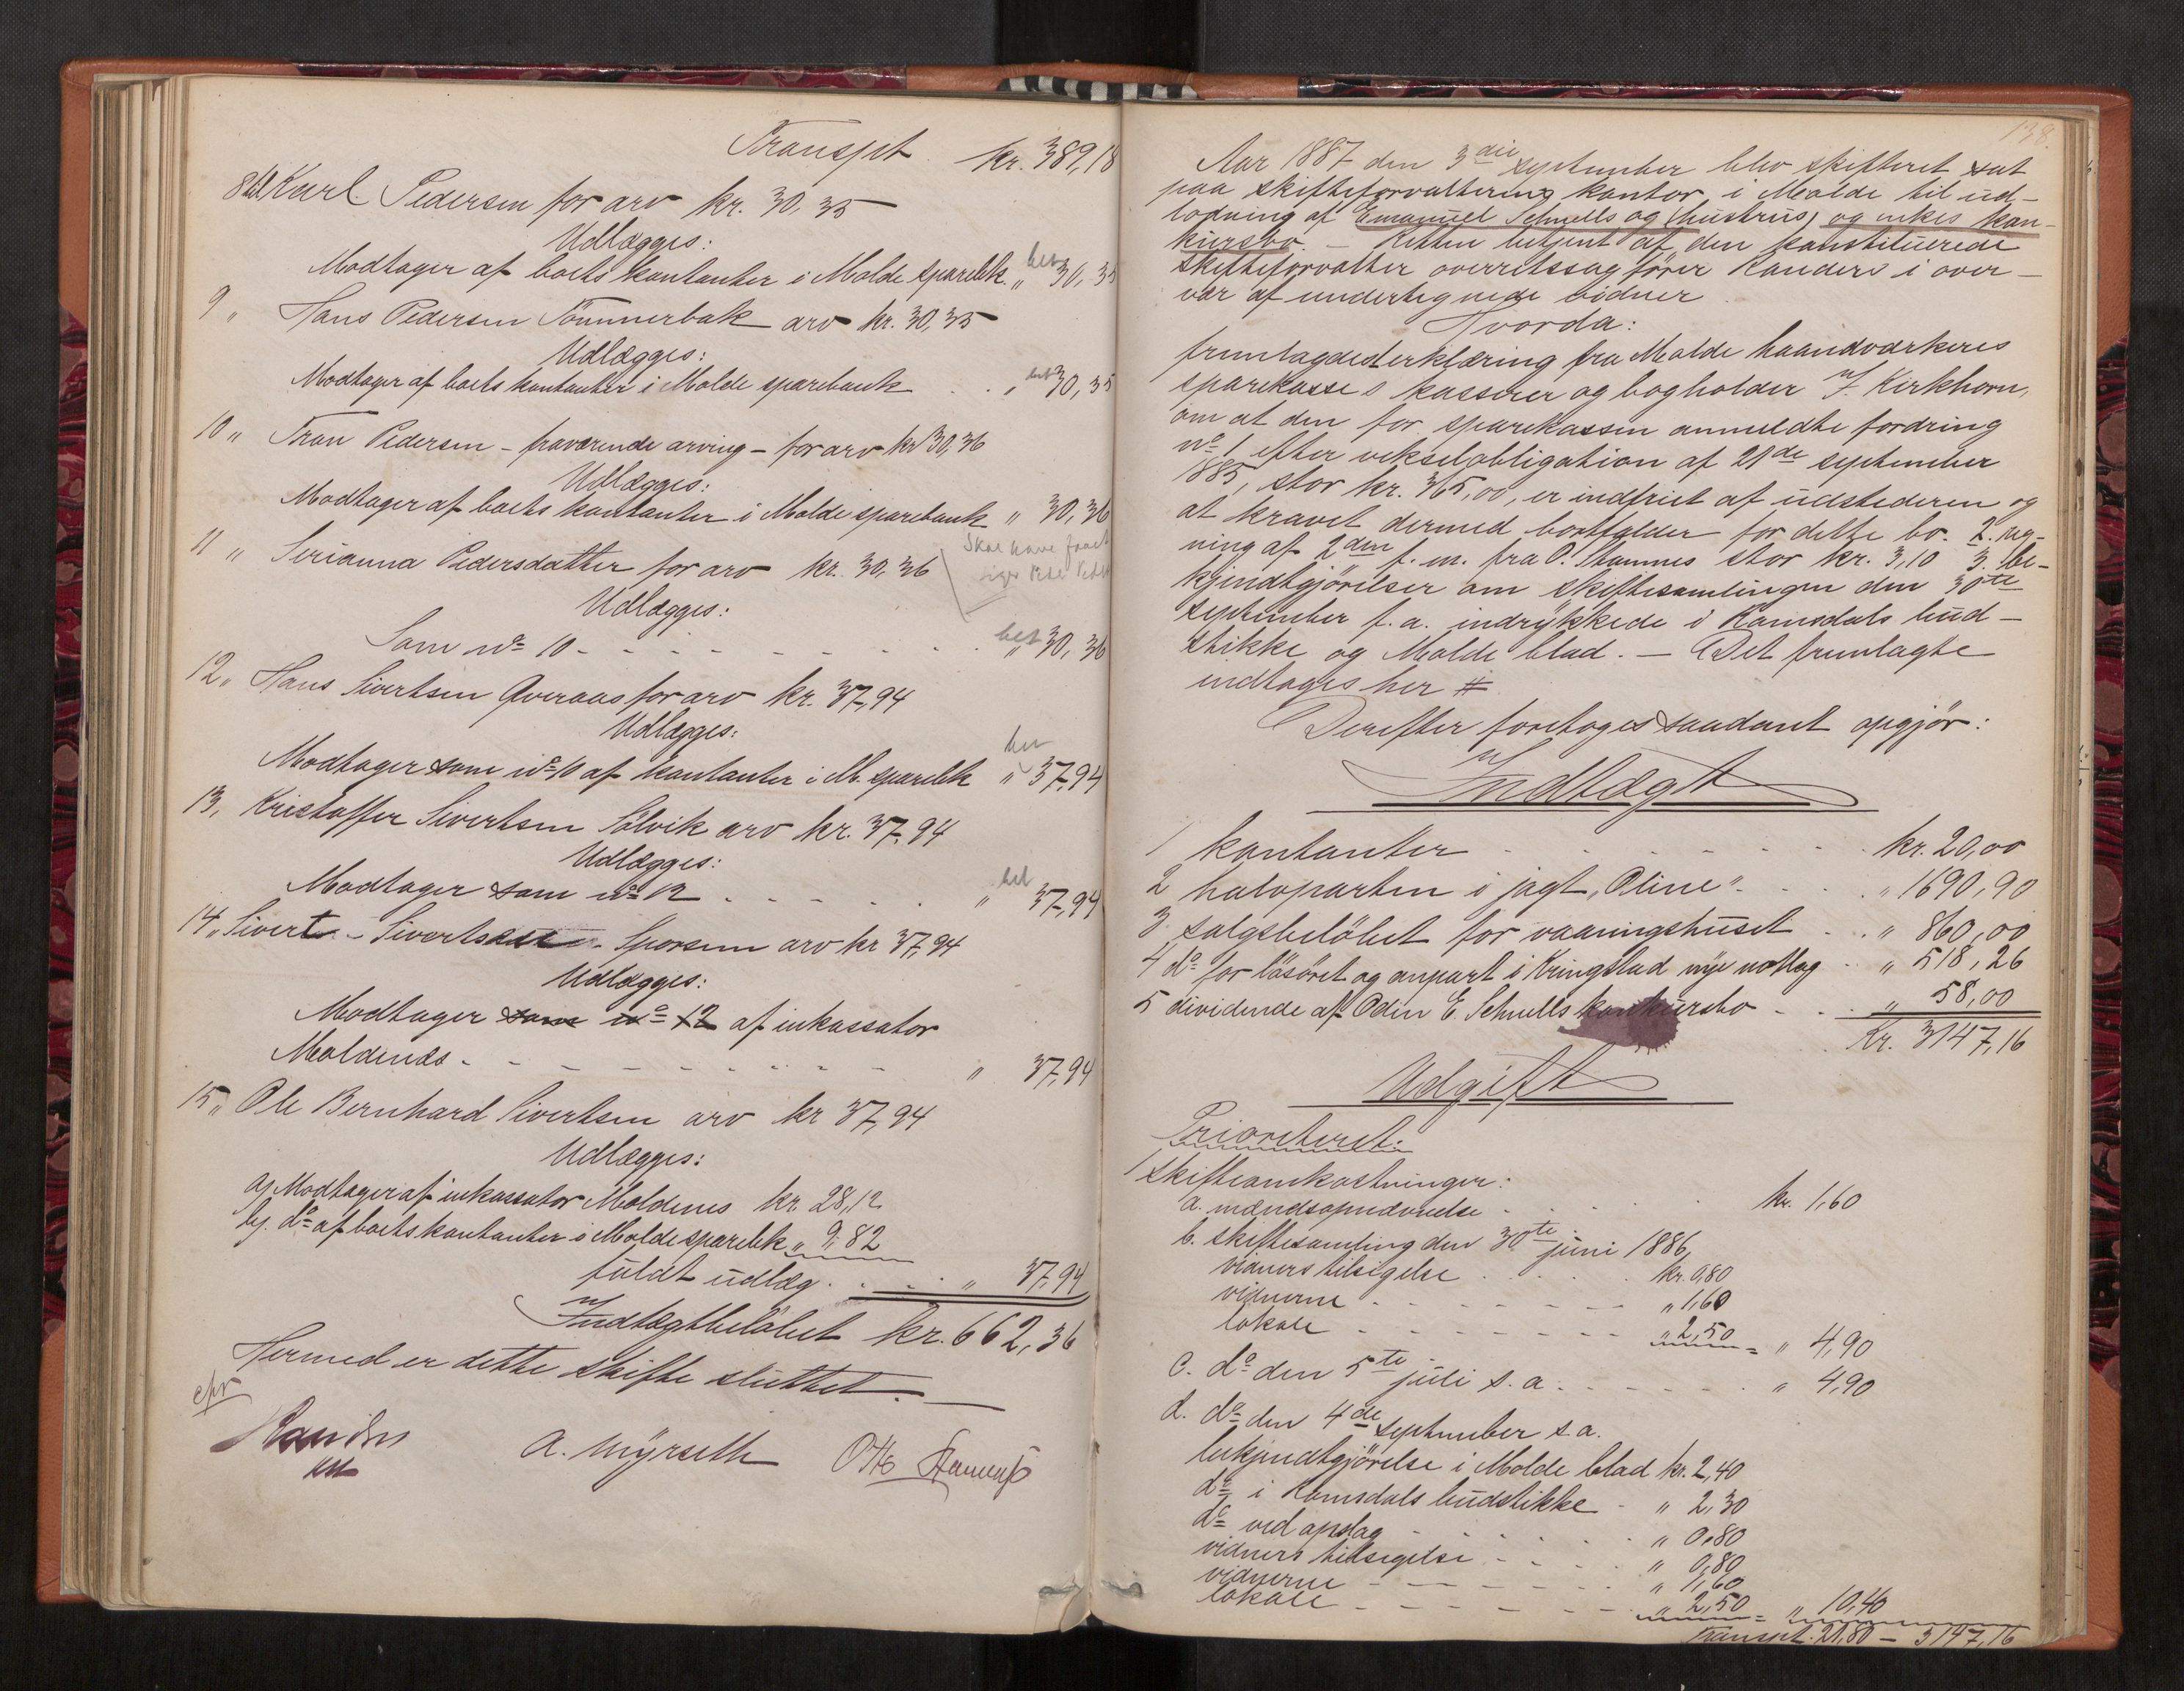 Transpt kr. 389,18
8 til Karl Pedersen for arv kr. 30,35
Udlægges:
Modtager af boets kontanter i Molde sparebk. „ bet 30,35
9 „ Hans Pedersen Tömmerbak arv kr. 30,35
Udlægges:
Modtager af boets kontanter i Molde sparebank . . „ bet 30,35
10 „ Tron Pedersen – fraværende arving – for arv kr 30,36
Udlægges:
Modtager af boets kontanter i Molde sparebank „ 30,36
11 „ Serianna Pedersdatter for arv kr. 30,36
Skal have faaet
siger Peder
Udlægges:
Som no 10 - - - - - - - „ bet 30,36
12 „ Hans Sivertsen Averaas for arv kr. 37,94
Udlægges:
Modtager som no 10 af kontanter i M. sparebk „ bet 37,94
13, Kristoffer Sivertsen Sölvik arv kr. 37,94
Udlægges:
Modtager som no 12 . - - - - . „ bet 37,94
14 „ Sivert Sivertsen Sporsem arv kr 37,94
Udlægges:
Modtager som no 12 af inkassator
Moldenæs - - - - - - - „ 37,94
15 „ Ole Bernhard Sivertsen arv kr 37,94
Udlægges:
a, Modtager af inkassator Moldenes kr. 28,12
b, do af boets kontanter i Molde sparebk „ 9,82
fuldt udlæg . . . . „ 37,94
Indtægtbelöbet kr. 662,36
Hermed er dette skifte sluttet. —
Randers
kst
A. Myrseth Otto Stamnes
138.
Aar 1887 den 3die september blev skifteret sat
paa skifteforvalterens kontor i Molde til ud-
lodning af Emanuel Schnells og (hustrus) og enkes kon-
kursbo. — Retten betjent af den konstituerede
skifteforvalter overretssagförer Randers i over-
vær af undertegnede vidner
Hvorda:
fremlagdes erklæring fra Molde haandværkeres
sparekasse s kasserer og bogholder J. Kirkhorn,
om at den for sparekassen anmeldte fordring
no 1 efter vekselobligation af 21de september
1885, stor kr. 365,00, er indfriet af udstederen og
at kravet dermed bortfalder for dette bo. 2. reg-
ning af 2den f. m. fra O. Stamnes stor kr. 3,10 3. be-
kjendtgjörelser om skiftesamlingen den 30te
september f. a. indrykkede i Romsdals bud-
stikke og Molde blad. — Det fremlagte
indtages her #
Derefter foretoges saadant opgjör:
Indtægt
1 kontanter - - - - - - kr. 20,00
2 halvparten i jagt „Oline" - . . . „ 1690,90
3 salgsbelöbet for vaaningshuset . . „ 860,00
4 do for lösöret og anpart i Kringstad nye notlag . . „ 518,26
5 dividende af Odin E. Schnells konkursbo - . . „ 58,00
Kr. 3147,16
Udgift
Prioriteret:
1 Skifteomkostninger:
a. mændsopnævnelse - . . . . kr. 1,60
b. skiftesamling den 30te juni 1886,
vidners tilsigelse . . . . kr. 0,80
vidnerne - - - - - - - „ 1,60
lokale - - - - - - - „ 2,50 = „ 4,90
c. do den 5te juli s. a. - - - - - . „ 4,90
d. do den 4de september s. a.
bekjendtgjörelse i Molde blad kr. 2,40
do i Romsdals budstikke - „ 2,30
do ved opslag - - - - . „ 0,80
vidners tilsigelse - - - . „ 0,80
vidnerne - - - - - - . „ 1,60
lokale - - - - - - - „ 2,50 = „ 10,40
Transpt. 21,80 — 3147,16